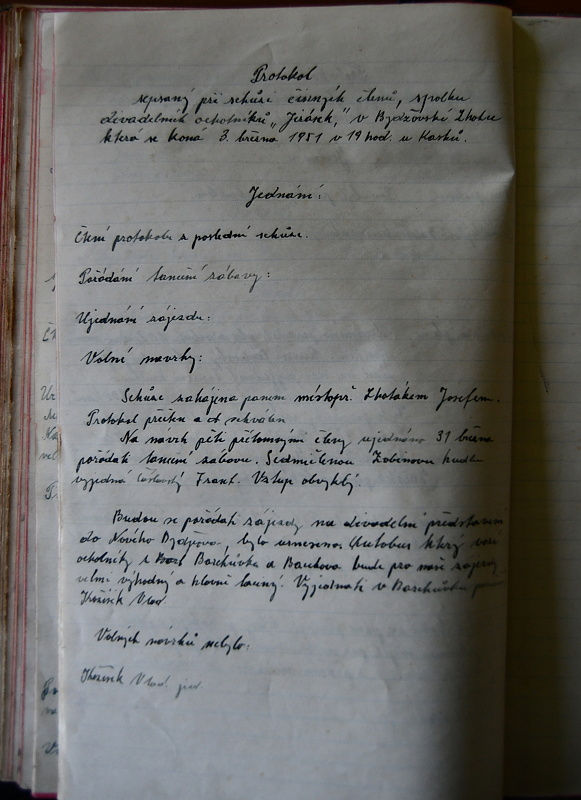 Protokol
sepsaný při schůzi činných členů, spolku
divadelních ochotníků „Jirásek," v Bydžovské Lhotce
která se koná 3. března 1951 v 19 hod. u Kasků.
Jednání:
Čtení protokolu z poslední schůze.
Pořádání taneční zábavy:
Ujednání zájezdu:
Volné navrhy:
Schůze zahájena panem místopř. Josefem.
Protokol přečten a schválen
Na návrh pěti přítomnými členy ujednáno 31 března
pořádati taneční zábavu. Sedmičlenou hudbu
vyjedná Frant. Vstup obvyklý.
Budou se pořádati zájezdy na divadelní představení
do Nového Bydžova. bylo usneseno. Autobus který vozí
ochotníky z a bude pro naše zájezdy
velmi výhodný a hlavně laciný. Vyjednati v
Kožíšek Vlad.
Volných návrhů nebylo:
Kožíšek Vlad. jed.